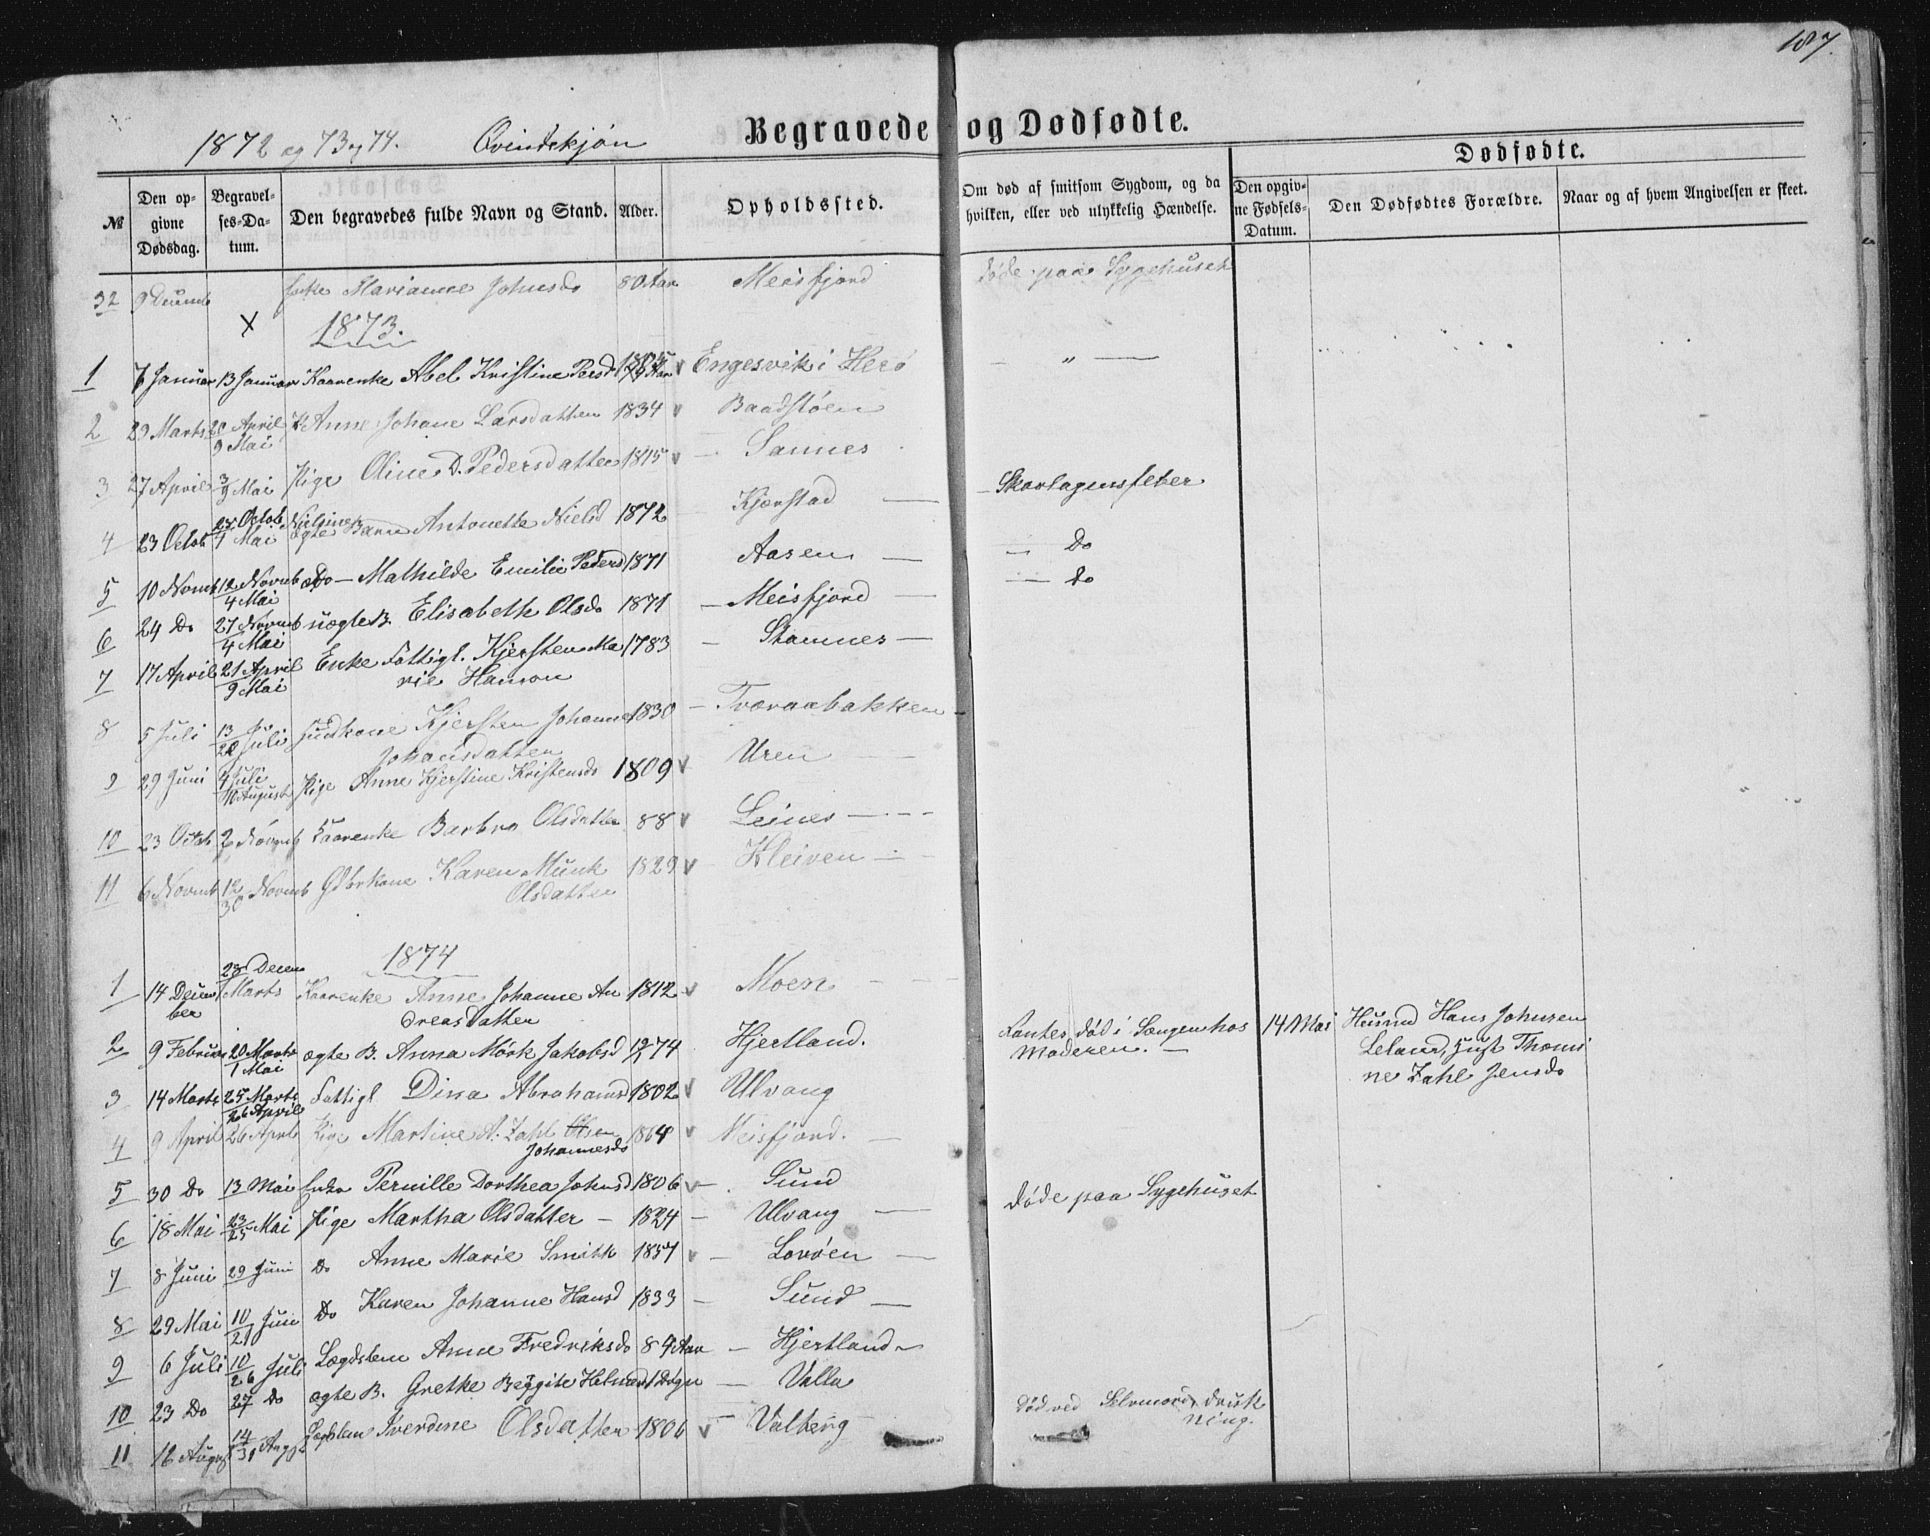 187.
1872 og 73 og 74. Qvindekjøn Begravede og Dødfødte.
Dødfødte.
№ Den opgivne Dødsdag. Begravelses-Datum. Den begravedes fulde Navn og Stand. Alder. Opholdssted. Om død af smitsom Sygdom, og da hvilken, eller ved ulykkelig Hændelse. Den opgivne Fødsels-Datum. Den Dødfødtes Forældre. Naar og af hvem Angivelsen er skeet.
32 Marianne Johnsd 80 Aar Meisfjord døde paa Sygehuset
1873.
1 7 Januar 13 Januar Kaarenke Abel Kristine Persd Engesvik i Herø "
2 29 Marts 20 April 9 Mai Anne Johane Larsdatter 1834 Baadstøen
3 27 April 3/9 Mai Pige Oline D. Pedersdatter 1845 Sannes
4 23 Octob 27 Octob 4 Mai Nielsine ægte Barn Antonette Nielsd 1872 Kjærstad Skarlagensfeber
5 10 Novmb 12 Novmb 4 Mai Do Mathilde Emilie Peders 1871 Aasen Do
6 24 Do 27 Novmb 4 Mai uægte B. Elisabeth Olsd 1871 Meisfjord do
7 17 April 21 April 9 Mai Enke Fattigl. Kjersten Ma 1783 Stamnes
rie Hanson
8 5 Juli 13/20 Juli Kjersten Johanne 1830 Tværaabakken
Johansdatter
9 29 Juni 4 Juli 10 August Pige Anne Kjerstine Kristensd 1809 Uren
10 23 Octob 2 Novmb Kaarenke Barbro Olsdatter 88 Leines
11 6 Novmb 12/30 Novmb Karen Munk 1829 Kleiven
Olsdatter
1874
1 14 Decem 28 Decem 1 Marts Kaarenke Anne Johanne An 1812 Moen
ber dreasdatter
2 9 Februar 20 Marts 1 Mai ægte B. Anna Mørk Jakobsd 12/1 74 Hjertland. Fantes død i Sængen hos 14 Mai Husmd Hans Johnsen
Moderen. Leland, Hust Thomi
ne Zahl Jensd
3 14 Marts 25 Marts 26 April Fattigl Dina Abrahamsd 1802 Ulvang
4 9 April 26 April Pige Martine A. Zahl Olsen 1864 Meisfjord.
Johannesd
5 30 Do 13 Mai Enke Pernille Dorthea Johnsd 1806 Sund døde paa Sygehuset
6 18 Mai 23/25 Mai Pige Martha Olsdatter 1824 Ulvang
7 8 Juni 29 Juni Do Anne Marie Smith 1857 Lovøen
8 29 Mai 10/21 Juni Do Karen Johanne Hansd 1833 Sund
9 6 Juli 10/26 Juli Lægdslem Anne Fredriksd 84 Aar Hjertland
10 23 Do 27 Do ægte B. Grethe Beggite 1 Døgn Valla
11 16 August 14/31 Aug Lægdslem Iverdine Olsdatter 1806 Valberg død ved Selvmord, druk
ning.